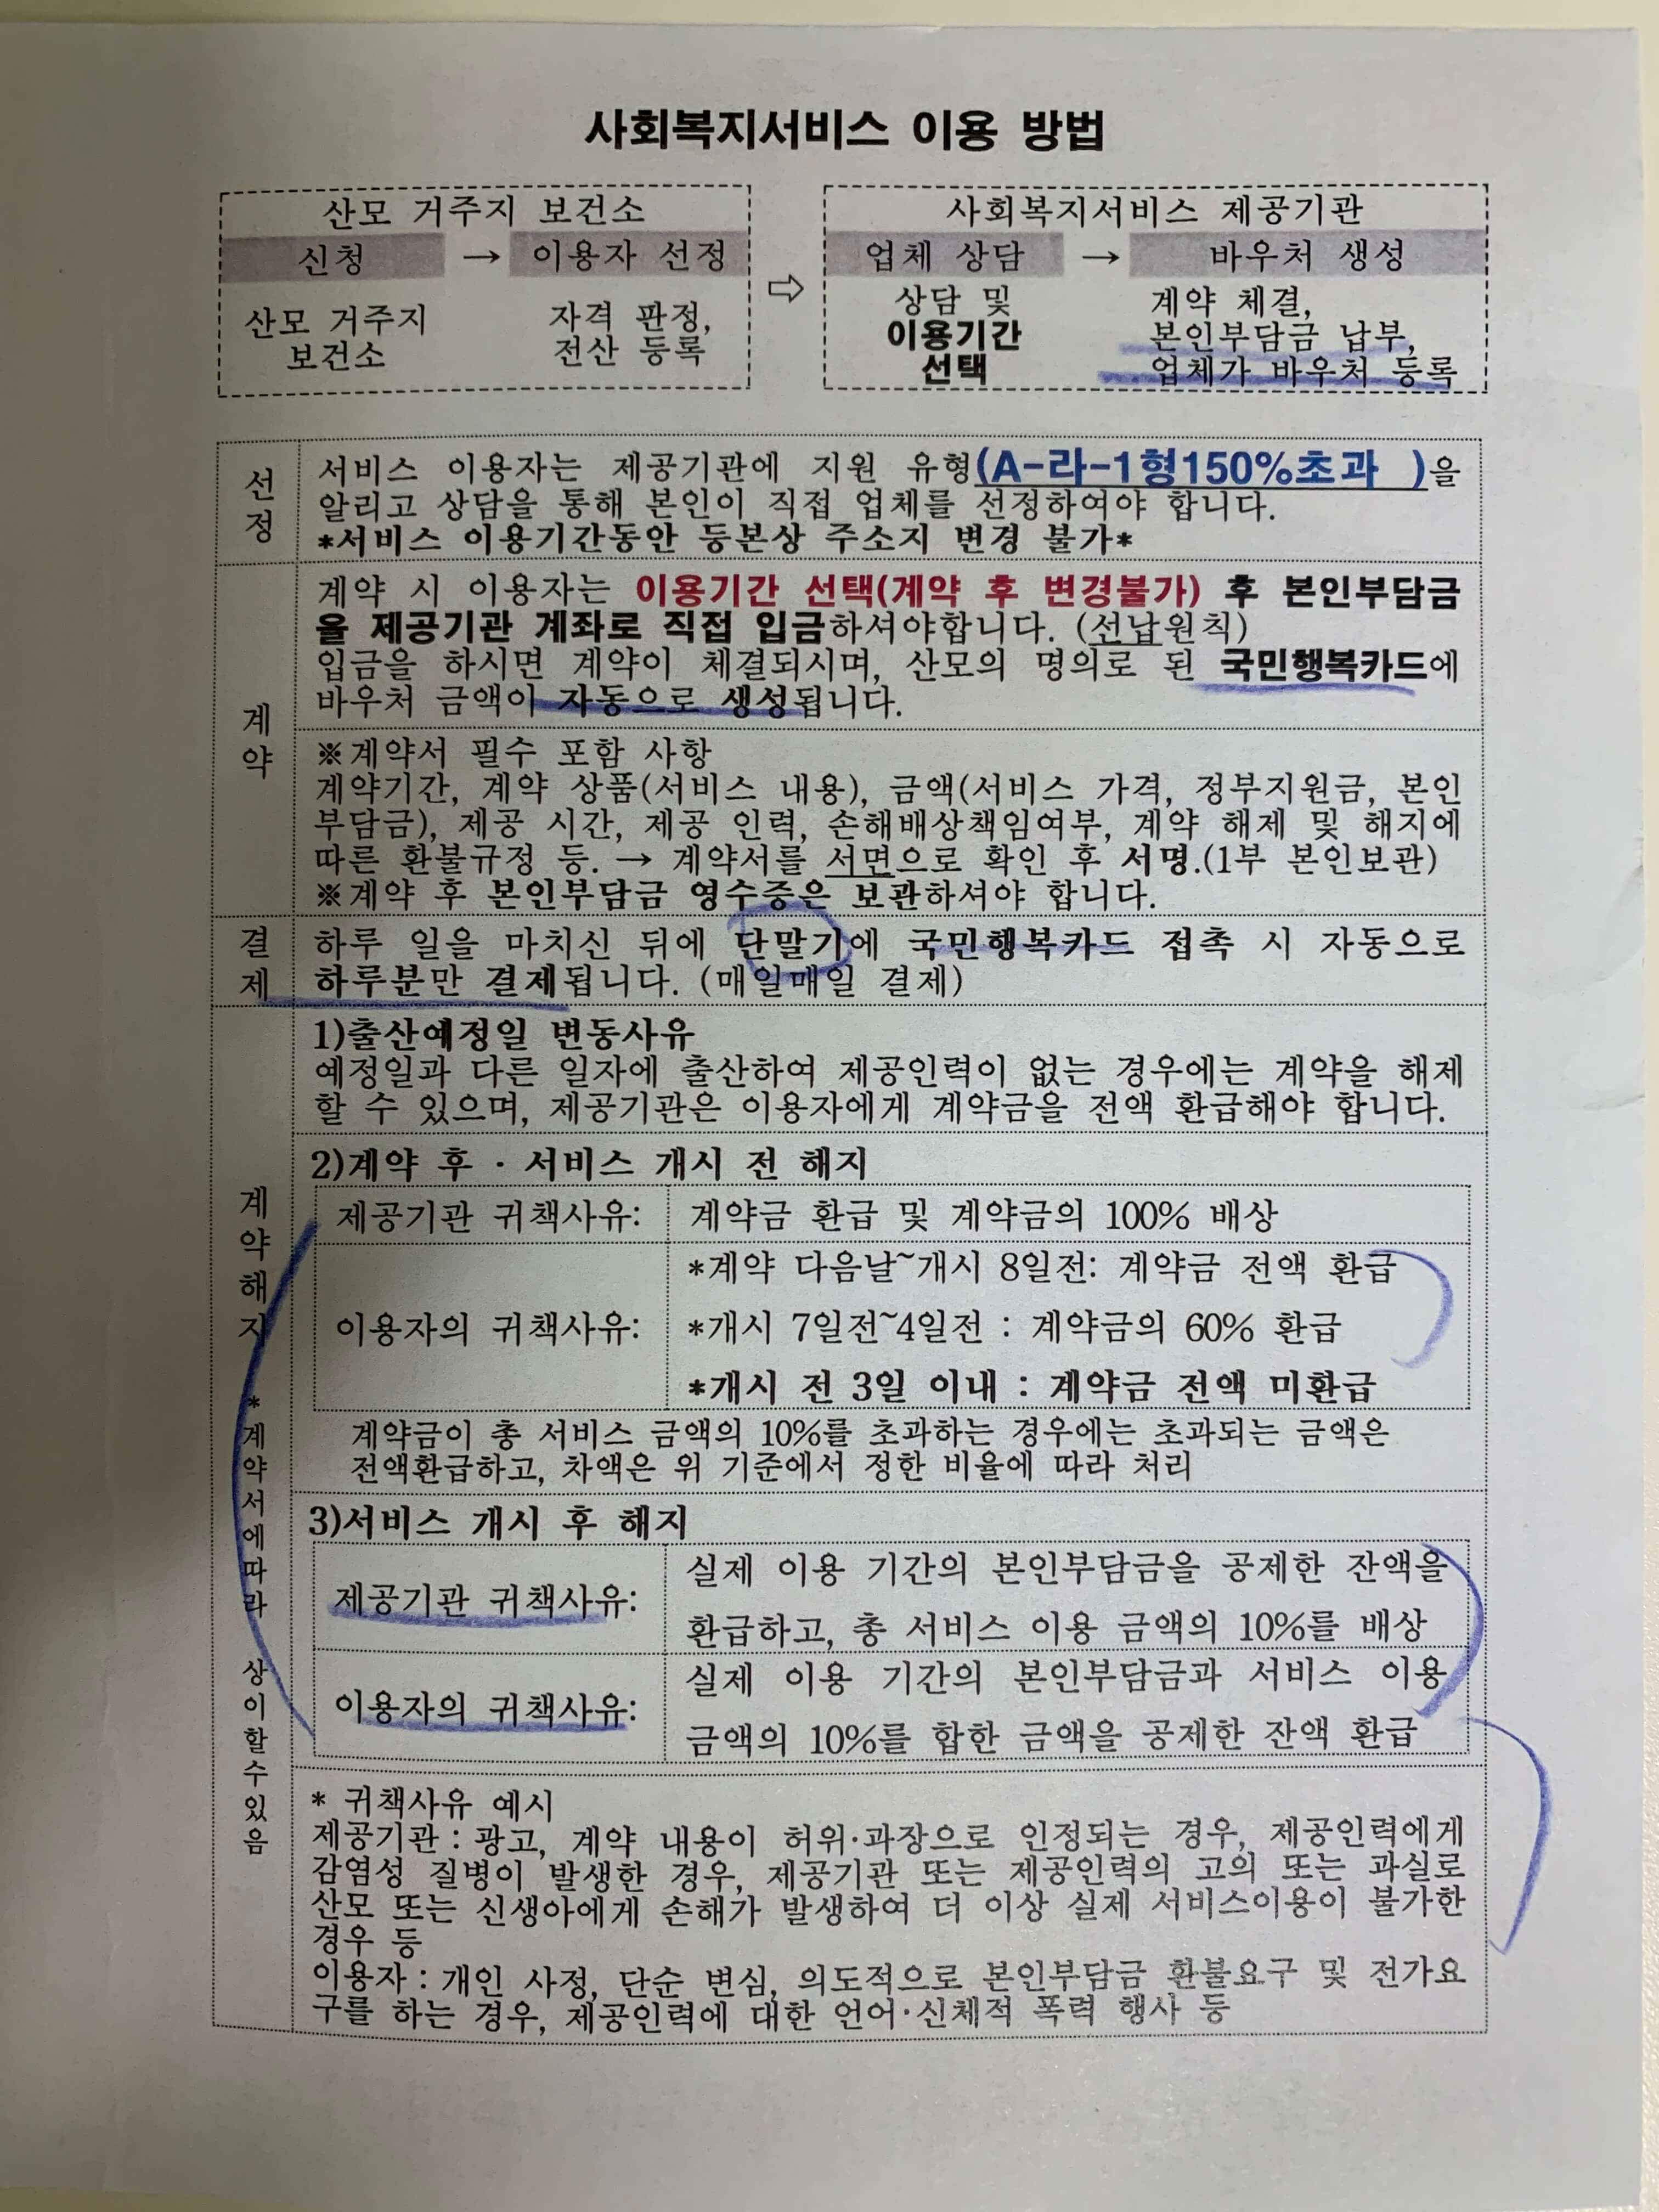 사회복지서비스 이용 방법
산모 거주지 보건소
신청 → 이용자 선정
산모 거주지
보건소
자격 판정,
전산 등록
⇨
사회복지서비스 제공기관
업체 상담 → 바우처 생성
상담 및
이용기간
선택
계약 체결,
본인부담금 납부,
업체가 바우처 등록
선정
서비스 이용자는 제공기관에 지원 유형(A-라-1형150%초과 )을
알리고 상담을 통해 본인이 직접 업체를 선정하여야 합니다.
*서비스 이용기간동안 등본상 주소지 변경 불가*
계약
계약 시 이용자는 이용기간 선택(계약 후 변경불가) 후 본인부담금
을 제공기관 계좌로 직접 입금하셔야합니다. (선납원칙)
입금을 하시면 계약이 체결되시며, 산모의 명의로 된 국민행복카드에
바우처 금액이 자동으로 생성됩니다.
※계약서 필수 포함 사항
계약기간, 계약 상품(서비스 내용), 금액(서비스 가격, 정부지원금, 본인
부담금), 제공 시간, 제공 인력, 손해배상책임여부, 계약 해제 및 해지에
따른 환불규정 등. → 계약서를 서면으로 확인 후 서명.(1부 본인보관)
※계약 후 본인부담금 영수증은 보관하셔야 합니다.
결제
하루 일을 마치신 뒤에 단말기에 국민행복카드 접촉 시 자동으로
하루분만 결제됩니다. (매일매일 결제)
계약해지 *계약서에따라 상이할수있음
1)출산예정일 변동사유
예정일과 다른 일자에 출산하여 제공인력이 없는 경우에는 계약을 해제
할 수 있으며, 제공기관은 이용자에게 계약금을 전액 환급해야 합니다.
2)계약 후 · 서비스 개시 전 해지
제공기관 귀책사유: 계약금 환급 및 계약금의 100% 배상
이용자의 귀책사유:
*계약 다음날~개시 8일전: 계약금 전액 환급
*개시 7일전~4일전 : 계약금의 60% 환급
*개시 전 3일 이내 : 계약금 전액 미환급
계약금이 총 서비스 금액의 10%를 초과하는 경우에는 초과되는 금액은
전액환급하고, 차액은 위 기준에서 정한 비율에 따라 처리
3)서비스 개시 후 해지
제공기관 귀책사유:
실제 이용 기간의 본인부담금을 공제한 잔액을
환급하고, 총 서비스 이용 금액의 10%를 배상
이용자의 귀책사유:
실제 이용 기간의 본인부담금과 서비스 이용
금액의 10%를 합한 금액을 공제한 잔액 환급
* 귀책사유 예시
제공기관 : 광고, 계약 내용이 허위·과장으로 인정되는 경우, 제공인력에게
감염성 질병이 발생한 경우, 제공기관 또는 제공인력의 고의 또는 과실로
산모 또는 신생아에게 손해가 발생하여 더 이상 실제 서비스이용이 불가한
경우 등
이용자 : 개인 사정, 단순 변심, 의도적으로 본인부담금 환불요구 및 전가요
구를 하는 경우, 제공인력에 대한 언어·신체적 폭력 행사 등